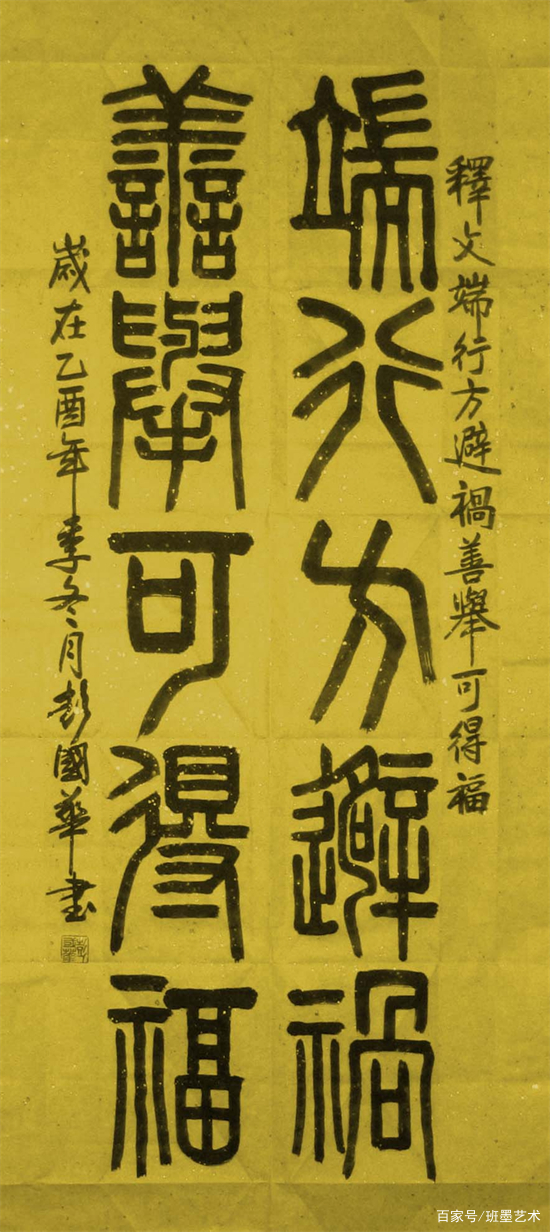 釋文端行方避禍善舉可得福
端行方避禍
善舉可得福
歲在乙酉年季冬月彭國華書
百家号/班墨艺术